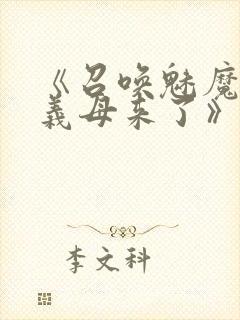 《召唤魅魔
義母来了》
李文科